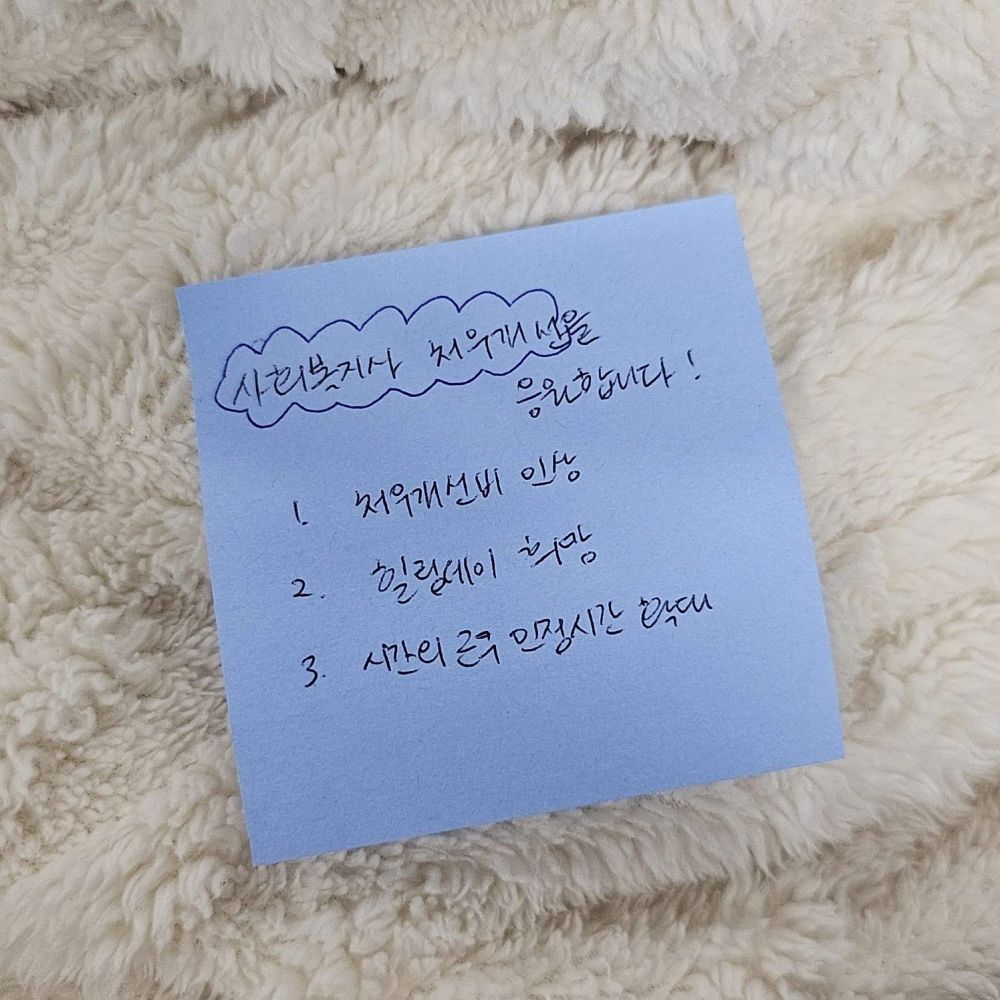 사회복지사 처우개선을
응원합니다!
1. 처우개선비 인상
2. 힐링데이 희망
3. 시간외 근무 인정시간 확대